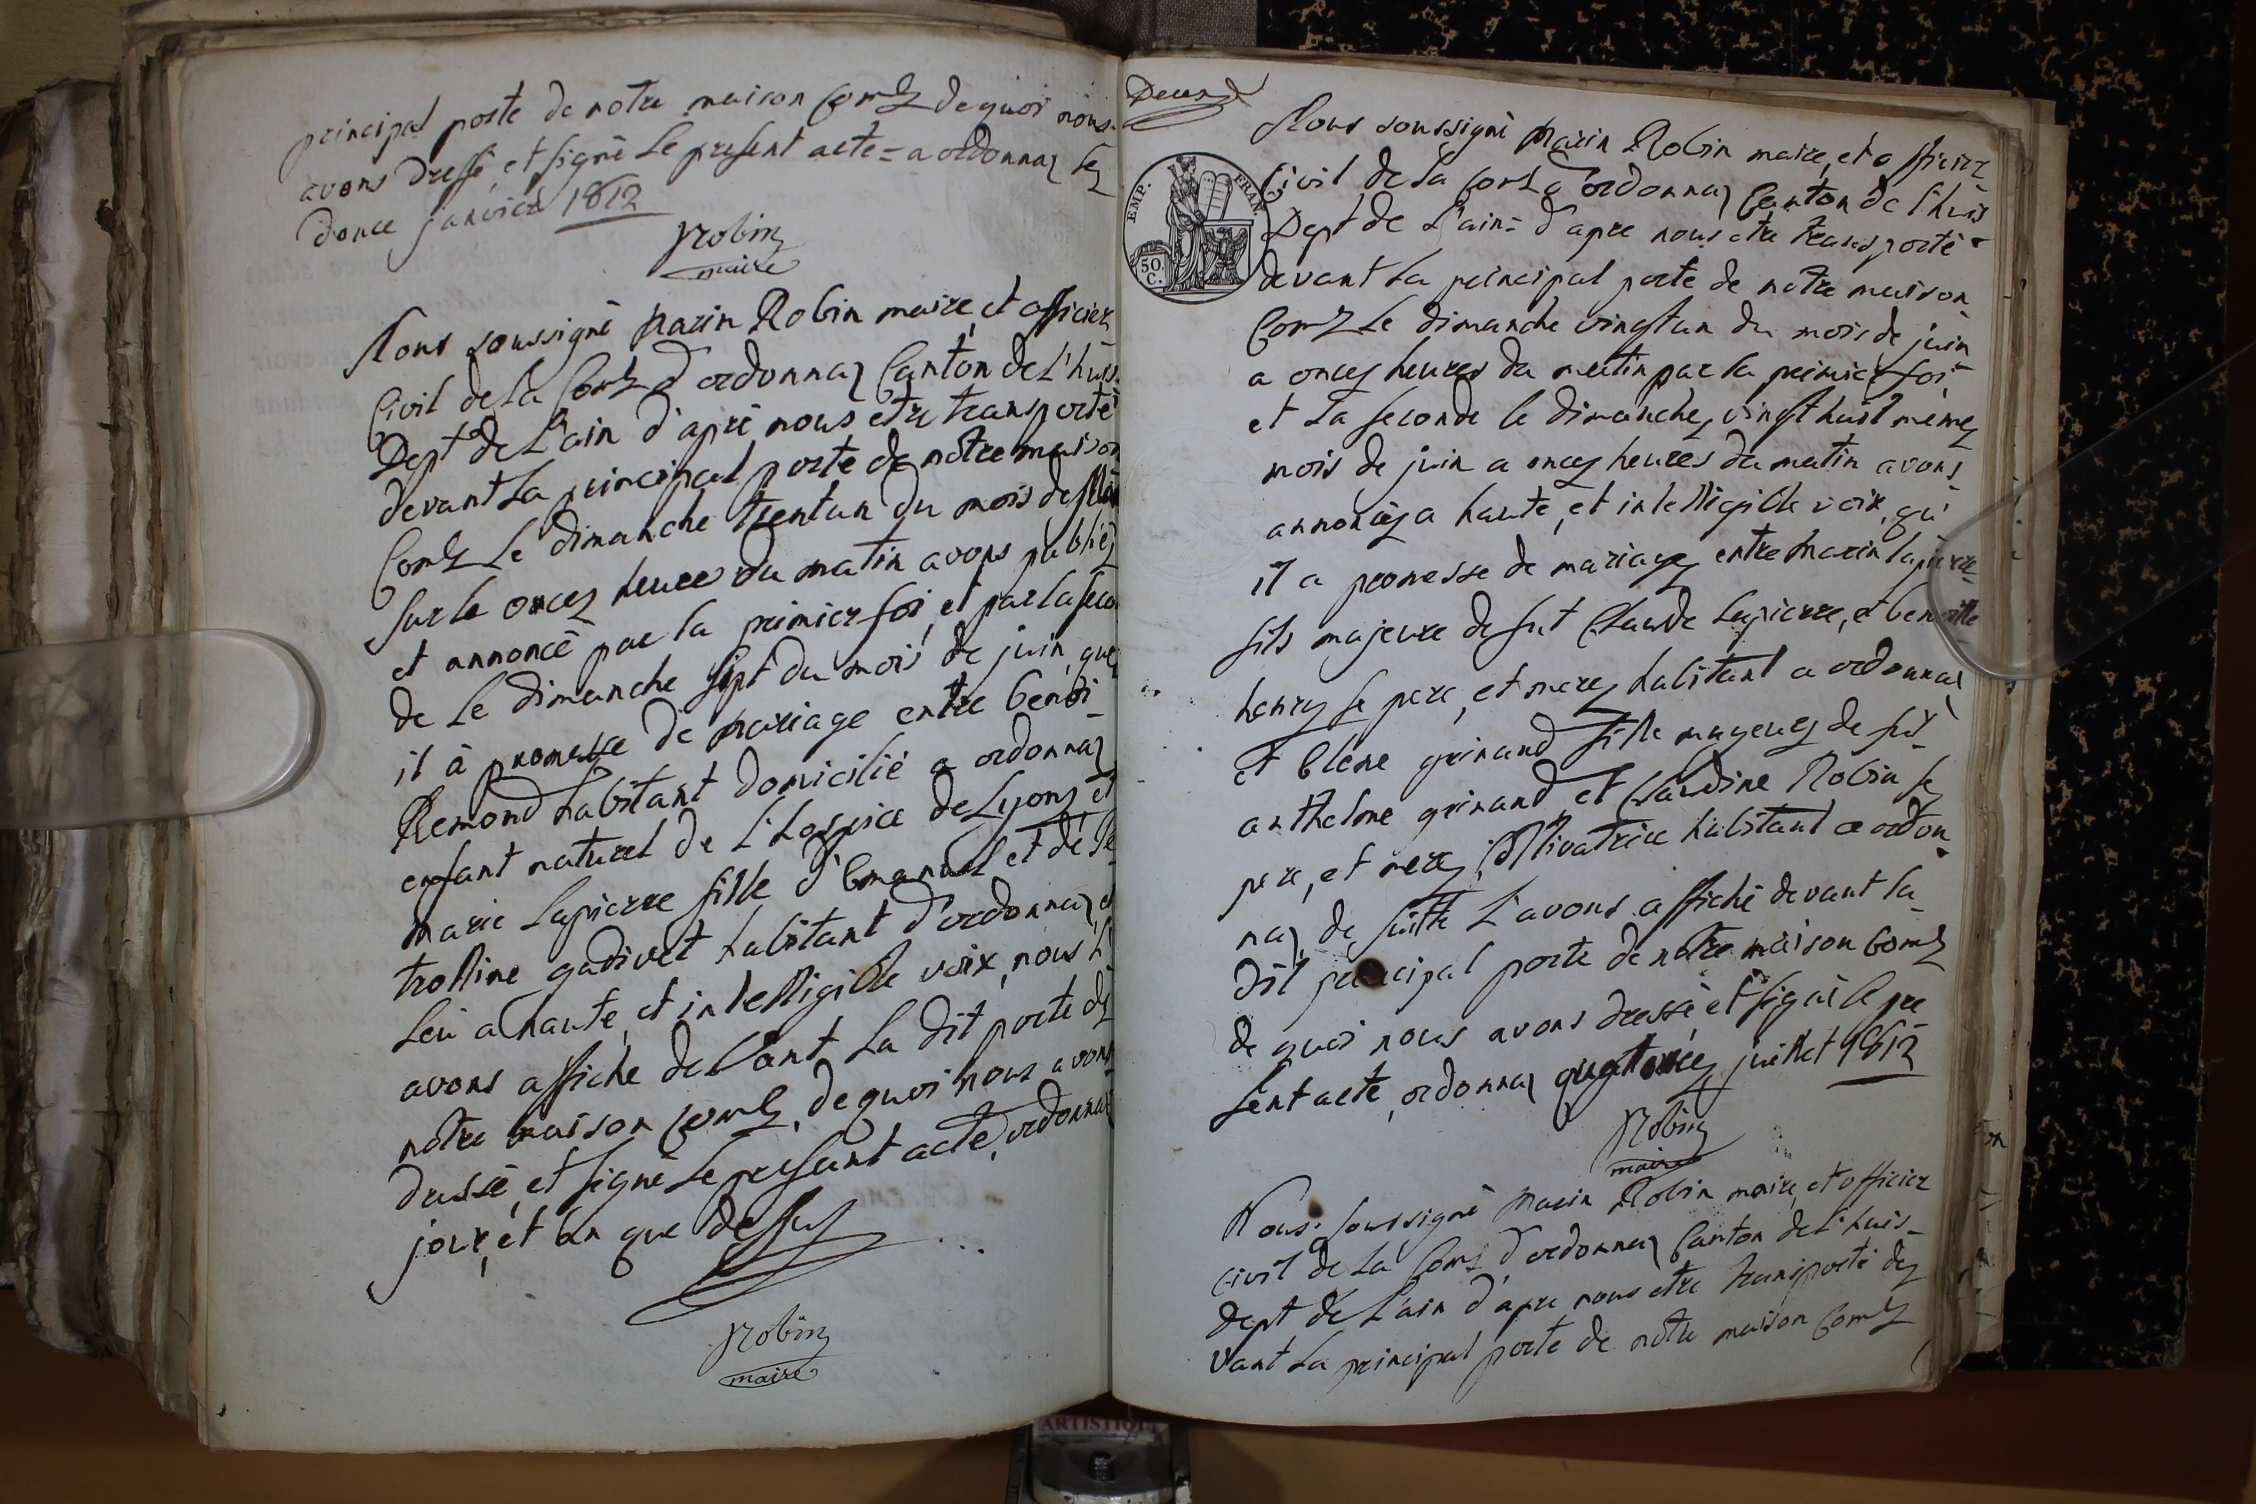 principal porte de notre maison Com^e de quoi nous
avons dressé, et signé le present acte = a ordonnaz le
douce janvier 1812
Robin
maire
Nous soussigné Marin Robin maire, et officier
Civil de la Com^e d'ordonnaz Canton de L'huis
Dept de L'ain d'apré nous etre transporté
devant La principal porte de notre maison
Com^e Le dimanche trentun du mois de Mai
sur le oncez heure du matin avons publiéz
et annoncé par la primier foi, et par la secon
de Le dimanche sept du moi de juin, que
il à promesse de Mariage entre benoi
Remond habitant domicilié a ordonnaz
enfant naturel de L'hospice de Lyons et
Marie Lapierre fille d'Emanuel et de Pe
trolline gadivet habitant d'ordonnaz, et
Leu a haute, et intelligible voix, nous L'
avons affiche devant La dit porte de
notre maison Com^e, de quoi nous avons
dressé, et signé Le present acte, ordonnaz
jour, et an que dessus
Robin
maire
Deux
EMP. FRAN.
50 C.
Nous soussigné Marin Robin maire, et officier
Civil de la Com^e d'ordonnaz Canton de l'huis
Dept de L'ain = d'apre nous etre transporté
devant La principal porte de notre maison
Com^e Le dimanche vingtun du mois de juin
a oncez heures du matin par la primier foi,
et La seconde le dimanchez vingt huit mêmez
mois de juin a oncez heures du matin avons
annoncéz a haute, et intelligible voix, qu'
il a promesse de mariagez entre Marin lapierre
fils majeure de fut Claude Lapierre, et benoitte
henry se pere, et merez habitant a ordonnaz
et Elene guinand fille mayeurz de fut
anthelme guinand, et Claudine Robin se
pere, et merez, Cultivatrice habitant a ordon
naz, de suitte L'avons affiché devant la
dit principal porte de notre maison Com^e
de quoi nous avons dressé, et signé le pre
sent acte, ordonnaz quatorcez juillet 1812
Robin
maire
Nous soussigné Marin Robin maire, et officier
Civil de La Com^e d'ordonnaz Canton de L'huis
dept de L'ain d'apre nous etre transporté de
vant La principal porte de notre maison Com^e